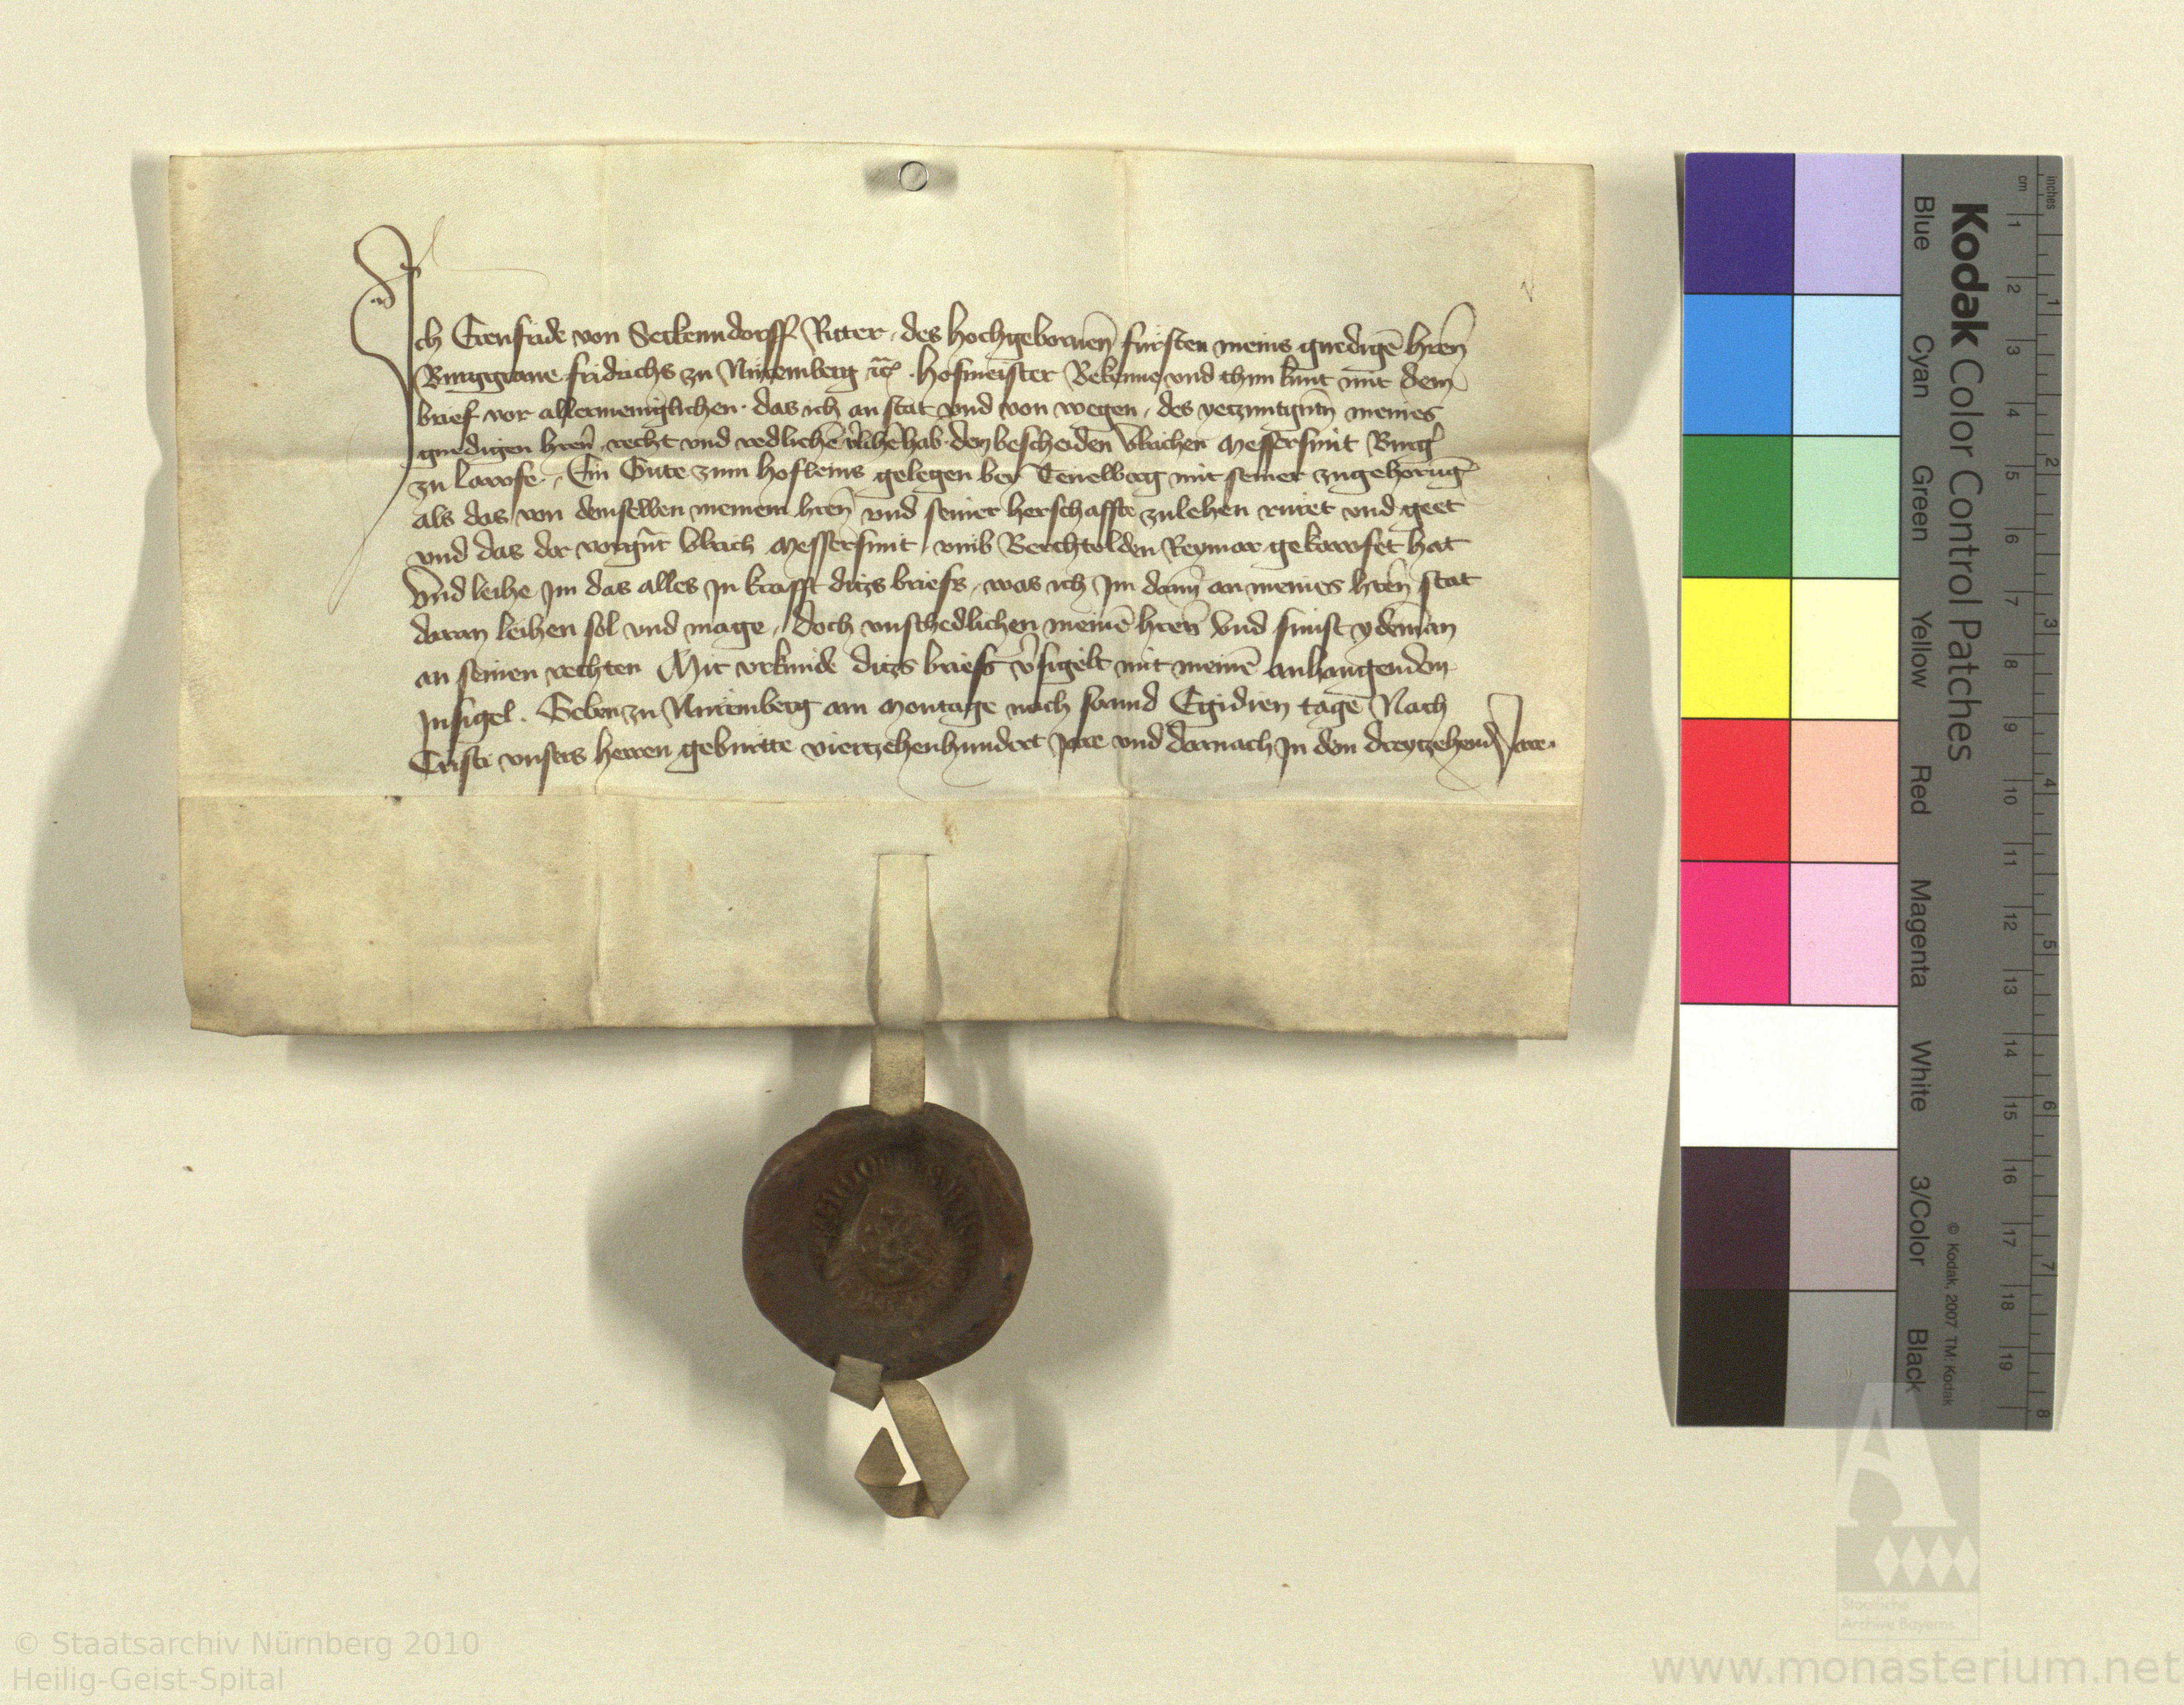 Ich Erenfride von Seckenndorff Ritter des hochgebornen̄ fursten meins gnedigē hren̄
Burggraue fridrichs zu Nuremberg ꝛc̄ hofmeister Bekenne vnd thun kunt mit dem
brief vor allermeniglichen das ich an stat vnd von wegen des yetzuntgn̄tn̄ meines
gnedigen hren̄ recht vnd redlichē v̓lihē hab den bescheiden Vlrichen Messersmit Burg̓
zu lawffe Ein Gute zum hofleins gelegen bey Tenelberg mit seiner zugehorūg
als das von demselben meinem hren̄ vnd seiner herschaffte zulehen ruret vnd geet
vnd das der vorgn̄t Vlrich Messersmit vmb Berchtolden Reymar gekawfet hat
Vnd leihe Im das alles In krafft ditzs briefs was ich Im dann̄ an meines hren̄ stat
daran leihen sol vnd mage doch vnschedlichen meinē hren̄ Vnd sunst ydeman
an seinen rechten Mit vrkunde ditzs briefs v̓sigelt mit meinē anhangenden
Insigel. Geben zu Nuremberg am Montage nach sannd Egidien tage Nach
Cristi vnsers herren geburtte viertzehenhundert Jare vnd darnach In dem dreytzehend Jare.
Kodak Color Control Patches
Blue Cyan Green Yellow Red Magenta White 3/Color Black
© Kodak, 2007 TM: Kodak
cm 1 2 3 4 5 6 7 8 9 10 11 12 13 14 15 16 17 18 19
inches 1 2 3 4 5 6 7 8
A
Staatliche
Archive Bayerns
© Staatsarchiv Nürnberg 2010
Heilig-Geist-Spital
www.monasterium.net